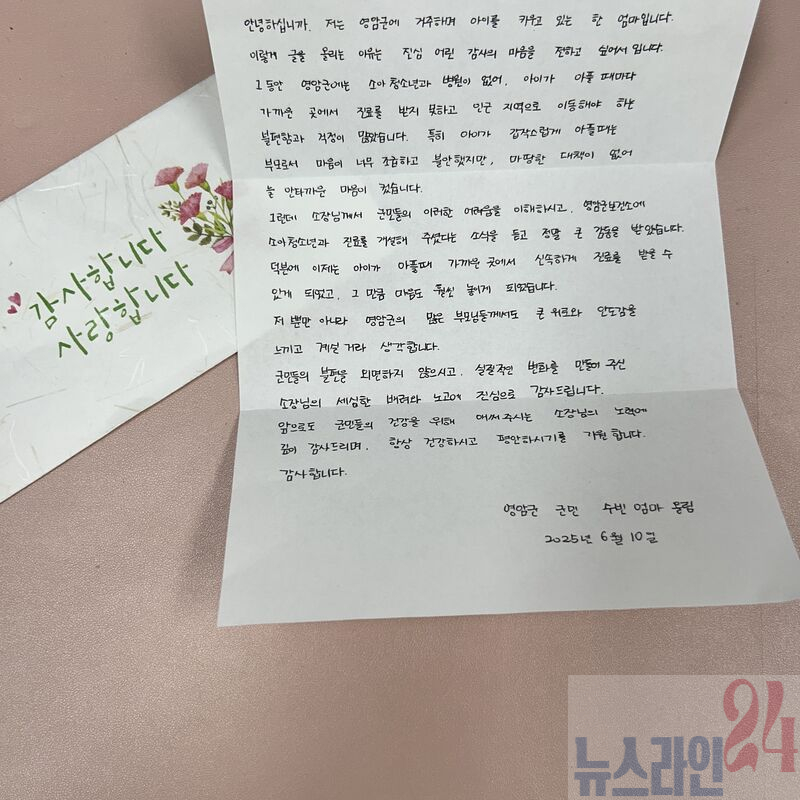 안녕하십니까. 저는 영암군에 거주하며 아이를 키우고 있는 한 엄마입니다.
이렇게 글을 올리는 이유는 진심 어린 감사의 마음을 전하고 싶어서 입니다.
그동안 영암군에는 소아청소년과 병원이 없어, 아이가 아플 때마다
가까운 곳에서 진료를 받지 못하고 인근 지역으로 이동해야 하는
불편함과 걱정이 많았습니다. 특히 아이가 갑작스럽게 아플때는
부모로서 마음이 너무 조급하고 불안했지만, 마땅한 대책이 없어
늘 안타까운 마음이 컸습니다.
그런데 소장님께서 군민들의 이러한 어려움을 이해하시고, 영암군보건소에
소아청소년과 진료를 개설해 주셨다는 소식을 듣고 정말 큰 감동을 받았습니다.
덕분에 이제는 아이가 아플때 가까운 곳에서 신속하게 진료를 받을 수
있게 되었고, 그 만큼 마음도 훨씬 놓이게 되었습니다.
저 뿐만 아니라 영암군의 많은 부모님들께서도 큰 위로와 안도감을
느끼고 계실 거라 생각합니다.
군민들의 불편을 외면하지 않으시고, 실질적인 변화를 만들어 주신
소장님의 세심한 배려와 노고에 진심으로 감사드립니다.
앞으로도 군민들의 건강을 위해 애써주시는 소장님의 노력에
깊이 감사드리며, 항상 건강하시고 평안하시기를 기원합니다.
감사합니다.
영암군 군민 수빈 엄마 올림
2025년 6월 10일
감사합니다
사랑합니다
뉴스라인24